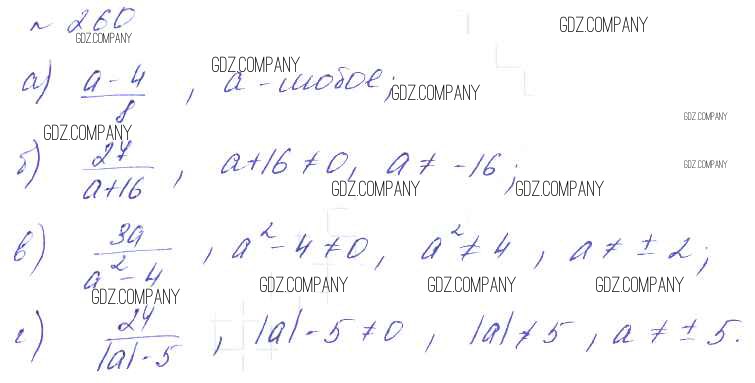 № 260
GDZ.COMPANY
GDZ.COMPANY
а) (a-4)/8, a - любое;
GDZ.COMPANY
GDZ.COMPANY
GDZ.COMPANY
GDZ.COMPANY
б) 27/(a+16), a+16≠0, a≠-16;
GDZ.COMPANY
GDZ.COMPANY
GDZ.COMPANY
в) 3a/(a²-4), a²-4≠0, a²≠4, a≠±2;
GDZ.COMPANY
GDZ.COMPANY
GDZ.COMPANY
GDZ.COMPANY
г) 24/(|a|-5), |a|-5≠0, |a|≠5, a≠±5.